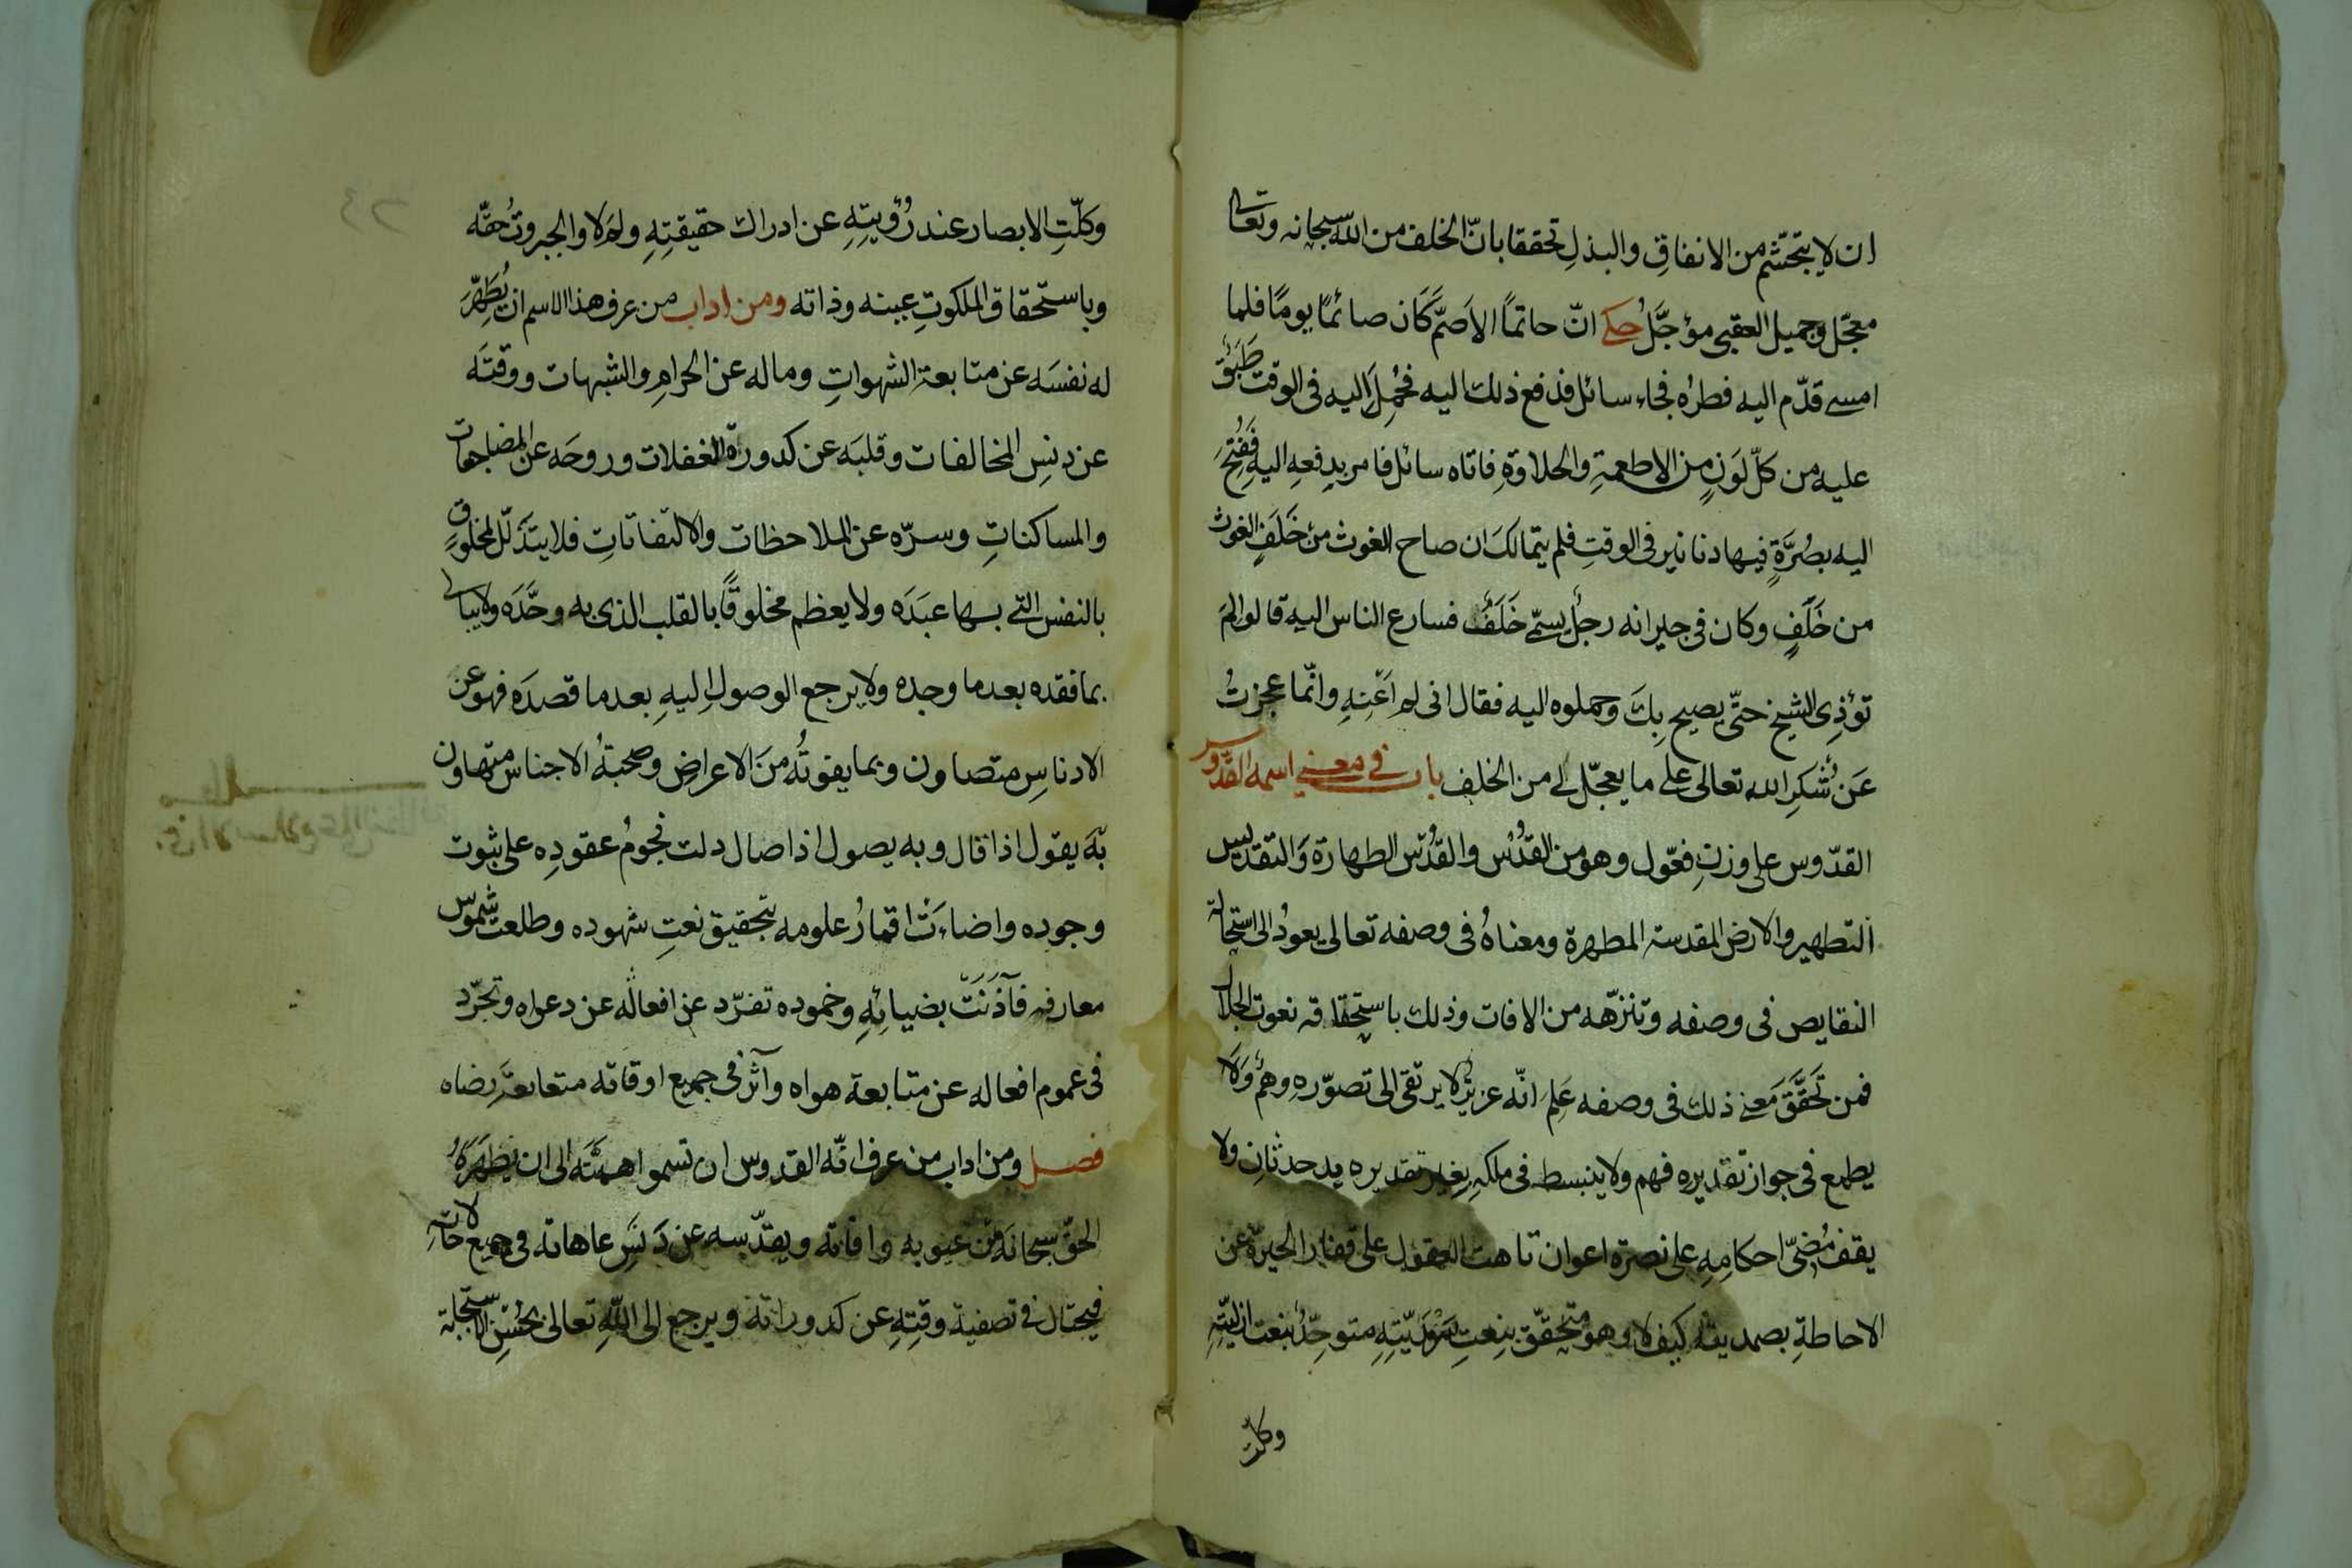 ان لا يتجشم من الانفاقِ والبذلِ تحققا بانّ الخلف من اللّه سبحانه وتعالى
معجّل وجميل العقبى مؤجَّل حكى انّ حاتمًا الاَصَمَّ كَان صائمًا يومًا فلما
امسى قدّم اليه فطرُه فجاء سائل فدفع ذلك اليه فحُمِلَ اليه فى الوقت طَبَقٌ
عليه من كلّ لَونٍ من الاطعمةِ والحلاوةِ فاتاه سائل فامر بدفعهِ اليه فَفُتِحَ
اليه بصُرَّةٍ فيها دنانير فى الوقتِ فلم يتمالكَ ان صاح الغوث من خَلَفٍ الغوث
من خَلَفٍ وكان فى جيرانه رجُلٌ يسمّى خَلَفٌ فسارع الناس اليه قالوا لِمَ
تؤذِى الشيخ حتّى يصيح بِكَ وحملوه اليه فقال انى لم اَعْنِهِ وانّما عجزتُ
عَن شُكرِ الله تعالى على ما يعجّل لى من الخلفِ باب فى معنى اسمه القدّوس
القدّوس على وزنِ فعّول وهو من القُدُس والقُدُس الطهارة وَالتقديس
التطهير والارض المقدسة المطهرة ومعناهُ فى وصفه تعالى يعودُ الى استحالة
النقايص فى وصفه وتنزّهه من الافات وذلك باستحقاقه نعوت الجلال
فمن تَحَقَّقَ مَعنى ذلك فى وصفه عَلِمَ انّه عزيزٌ لا يرتقى الى تصوّرهِ وهمٌ وَلَا
يطمع فى جواز تقديره فهم ولا ينبسط فى ملكهِ بغير تقديره يد حدثانِ ولا
يقف مُضىّ احكامِهِ على نصرة اعوان تاهت العقول على قفار الحيرة عن
الاحاطةِ بصمديته كيف لا وهو متحقّق بنعتِ سَرْمَديّتِهِ متوحِّدٌ بنعت ازليّتهِ
وكلّت
وكلّتِ الابصار عند رُؤيتِهِ عن ادراك حقيقتِهِ ولم لا والجبروتُ حقّه
وباستحقاق الملكوتِ عينه وذاته ومن اداب من عرف هذا الاسم ان يُطَهِّرَ
له نفسَه عن متابعة الشهواتِ وماله عن الحرامِ والشبهات ووقتَه
عن دنسِ المخالفات وقلبَه عن كدورة الغفلات وروحَه عن المضاجعات
والمساكناتِ وسرّه عن الملاحظات والالتفاتاتِ فلا يتذَلّل لمخلوقٍ
بالنفس التى بها عبَدَه ولا يعظم مخلوقًا بالقلب الذى به وحَّدَه ولا يبالى
بما فقده بعد ما وجده ولا يرجع الوصول اليهِ بعد ما قصدَه فهو عن
الادناسِ متصاون وبما يفوتُه منَ الاعراضِ وصحبةُ الاجناس متهاون
بهَ يقول اذا قال وبه يصول اذا صال دلت نجومُ عقودِه على ثبوت
وجوده واضاءَت اقمارُ علومه بتحقيق نعتِ شهوده وطلعت شموس
معارفهِ فآذَنَتْ بضيائهِ وخموده تفرّد عن افعاله عن دعواه وتجرّد
فى عموم افعاله عن متابعة هواه وآثر فى جميع اوقاته متعابعة رضاه
فصل ومن اداب من عرف انّه القدوس ان تسموا همتَّه الى ان يطَهِّرَهُ
الحقّ سبحانَه من عيوبه وافاته ويقدّسه عن دَنَسِ عاهاته فى جميع حالاتهِ
فيحتال فى تصفيةَ وقتِهِ عن كدوراته ويرجع الى اللّهِ تعالى بحُسْنِ